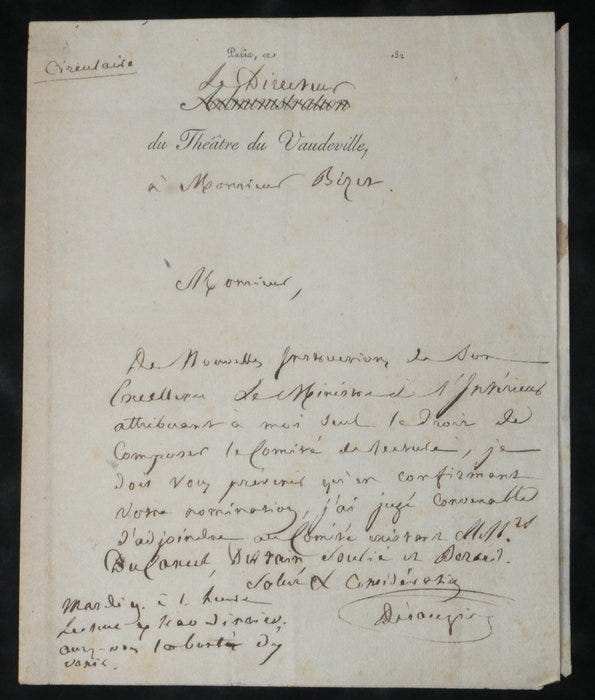 Circulaire
Paris, ce 182
Le Directeur
Administration
du Théâtre du Vaudeville,
à Monsieur Bizet.
Monsieur,
De Nouvelles Instructions de Son
Excellence Le Ministre de l'Intérieur
attribuant à moi seul le droit de
Composer le Comité de lecture, je
dois vous prévenir qu'en confirmant
votre nomination, j'ai jugé convenable
d'adjoindre au Comité existant MM.rs
Ducancel, Soulié et Berard.
Salut & Considération
Désaugiers
Mardi 9. à 1. heure
Lecture
ayez-vous la bonté d'y
venir.